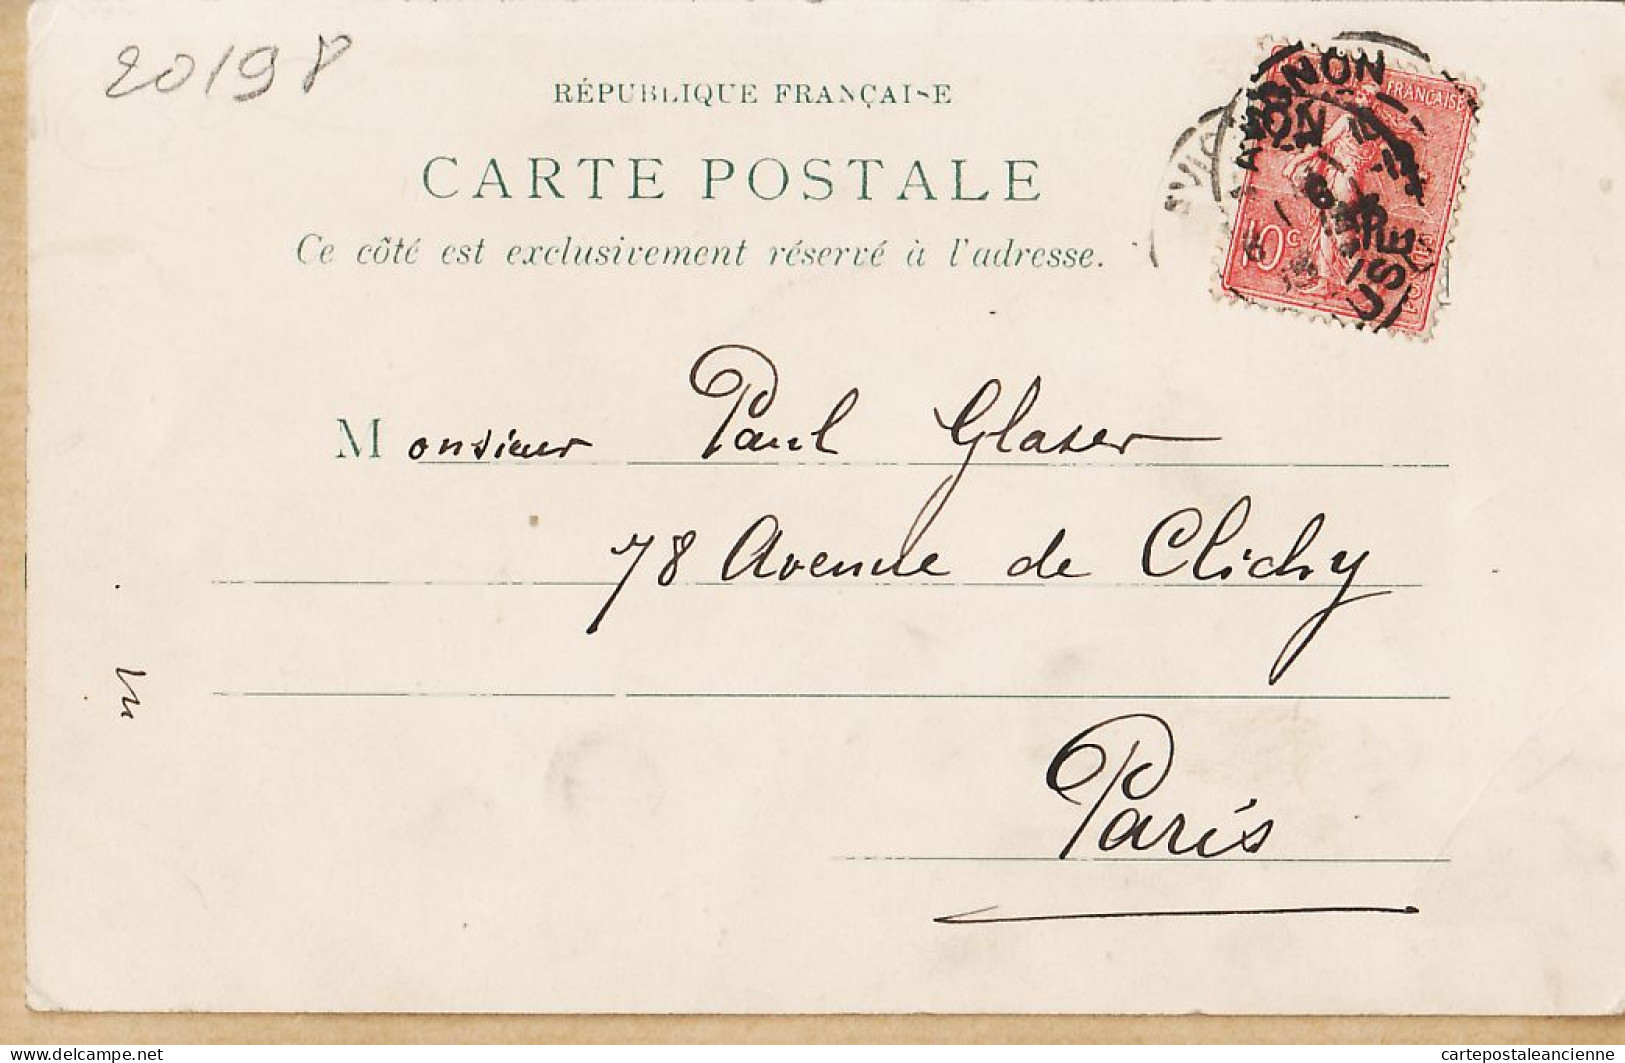 20198
RÉPUBLIQUE FRANÇAISE
CARTE POSTALE
Ce côté est exclusivement réservé à l'adresse.
FRANÇAISE
AVIGNON
10c
Monsieur Paul Glaser
78 Avenue de Clichy
Paris
delcampe.net
cartepostaleancienne